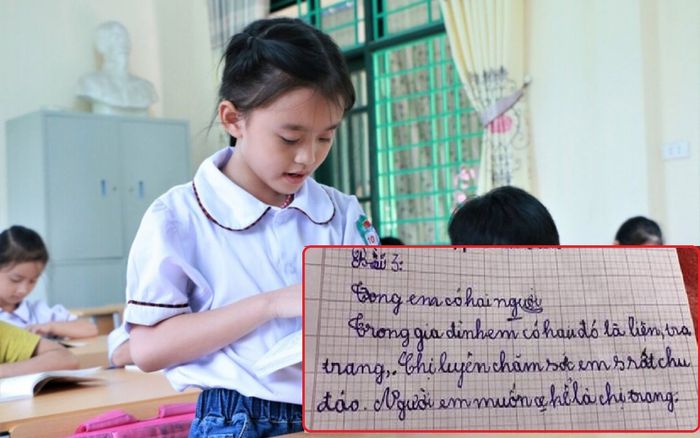 10
Bài 3:
Tong em có hai người
Trong gia đinh em có hau đó là liên, tra
trang,. Chi luyên chăm sơc em s rất chu
đáo. Người em muốn hể là chị trang.